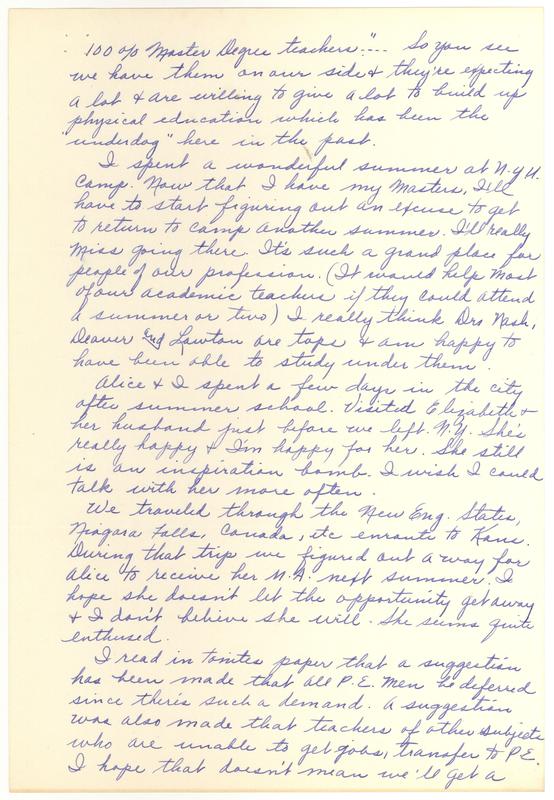 "100% Master Degree teachers."... So you see
we have them on our side & they're expecting
a lot & are willing to give a lot to build up
physical education which has been the
"underdog" here in the past.
I spent a wonderful summer at N.Y.U.
Camp. Now that I have my Masters, I'll
have to start figuring out an excuse to get
to return to camp another summer. I'll really
miss going there. It's such a grand place for
people of our profession. (It would help most
of our academic teachers if they could attend
a summer or two) I really think Drs Nash,
Deaver and Lawton are tops & am happy to
have been able to study under them.
Alice & I spent a few days in the city
after summer school. Visited Elizabeth &
her husband just before we left N.Y. She's
really happy & I'm happy for her. She still
is an inspiration bomb. I wish I could
talk with her more often.
We traveled through the New Eng. States,
Niagara Falls, Canada, etc enroute to Kans.
During that trip we figured out a way for
Alice to receive her M.A. next summer. I
hope she doesn't let the opportunity get away
& I don't believe she will. She seems quite
enthused.
I read in tonites paper that a suggestion
has been made that all P.E. men be deferred
since there's such a demand. A suggestion
was also made that teachers of other subjects
who are unable to get jobs, transfer to P.E.
I hope that doesn't mean we'll get a